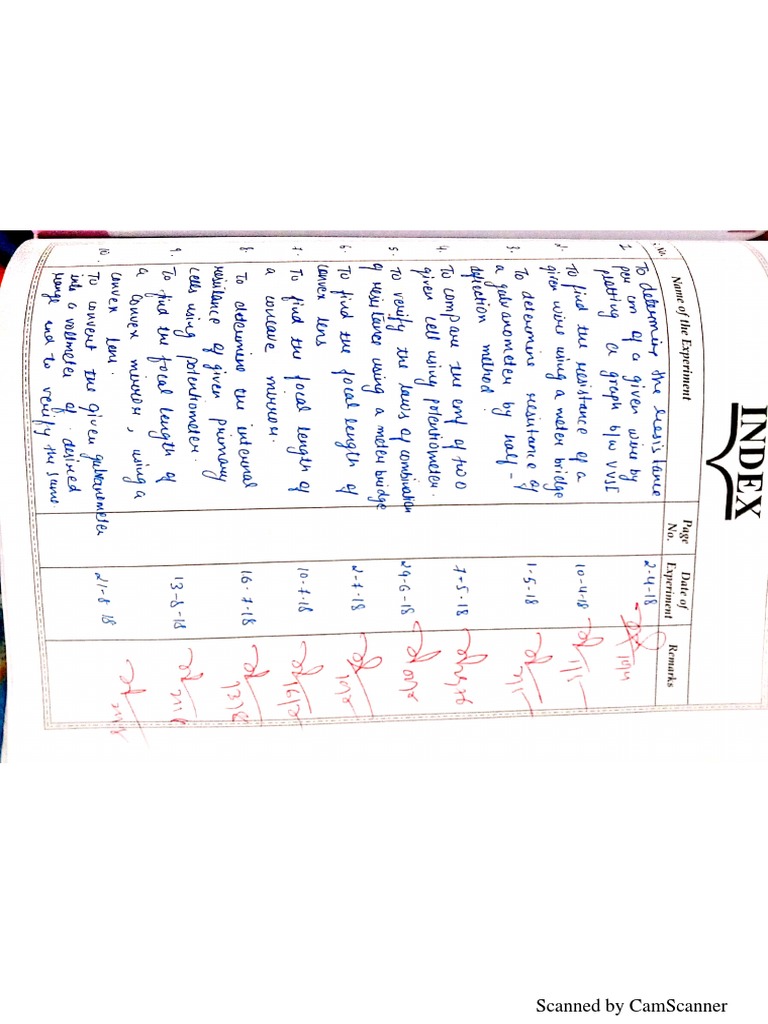 INDEX
S.No. Name of the Experiment Page No. Date of Experiment Remarks
1. To determine the resistance 2-4-18
per cm of a given wire by
plotting a graph b/w V vs I
2. To find the resistance of a 10-4-18
given wire using a meter bridge
3. To determine resistance of 1-5-18
a galvanometer by half-
deflection method.
4. To compare the emf of two 7-5-18
given cell using potentiometer.
5. To verify the laws of combination 29-6-18
of resistance using a meter bridge
6. To find the focal length of 2-7-18
convex lens
7. To find the focal length of 10-7-18
a concave mirror.
8. To determine the internal 16-7-18
resistance of given primary
cells using potentiometer.
9. To find the focal length of 13-8-18
a convex mirror, using a
convex lens.
10. To convert the given galvanometer 21-8-18
into a voltmeter of desired
range and to verify the same.
Scanned by CamScanner